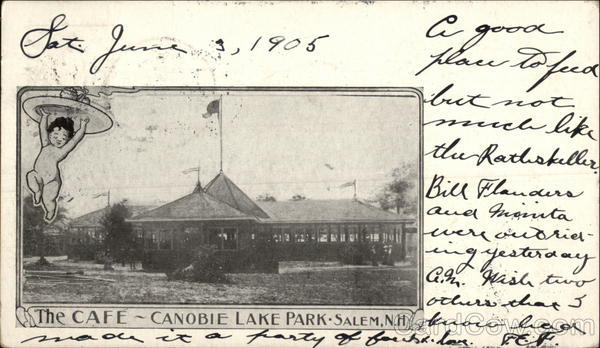 Sat. June 3, 1905
A good
place to feed
but not
much like
the Rathskeller.
Bill Flanders
and Minita
were out rid-
ing yesterday
A.M. Wish two
others that I
know had
made it a party of four
The CAFE ~ CANOBIE LAKE PARK · SALEM, N.H.
CardCow.com